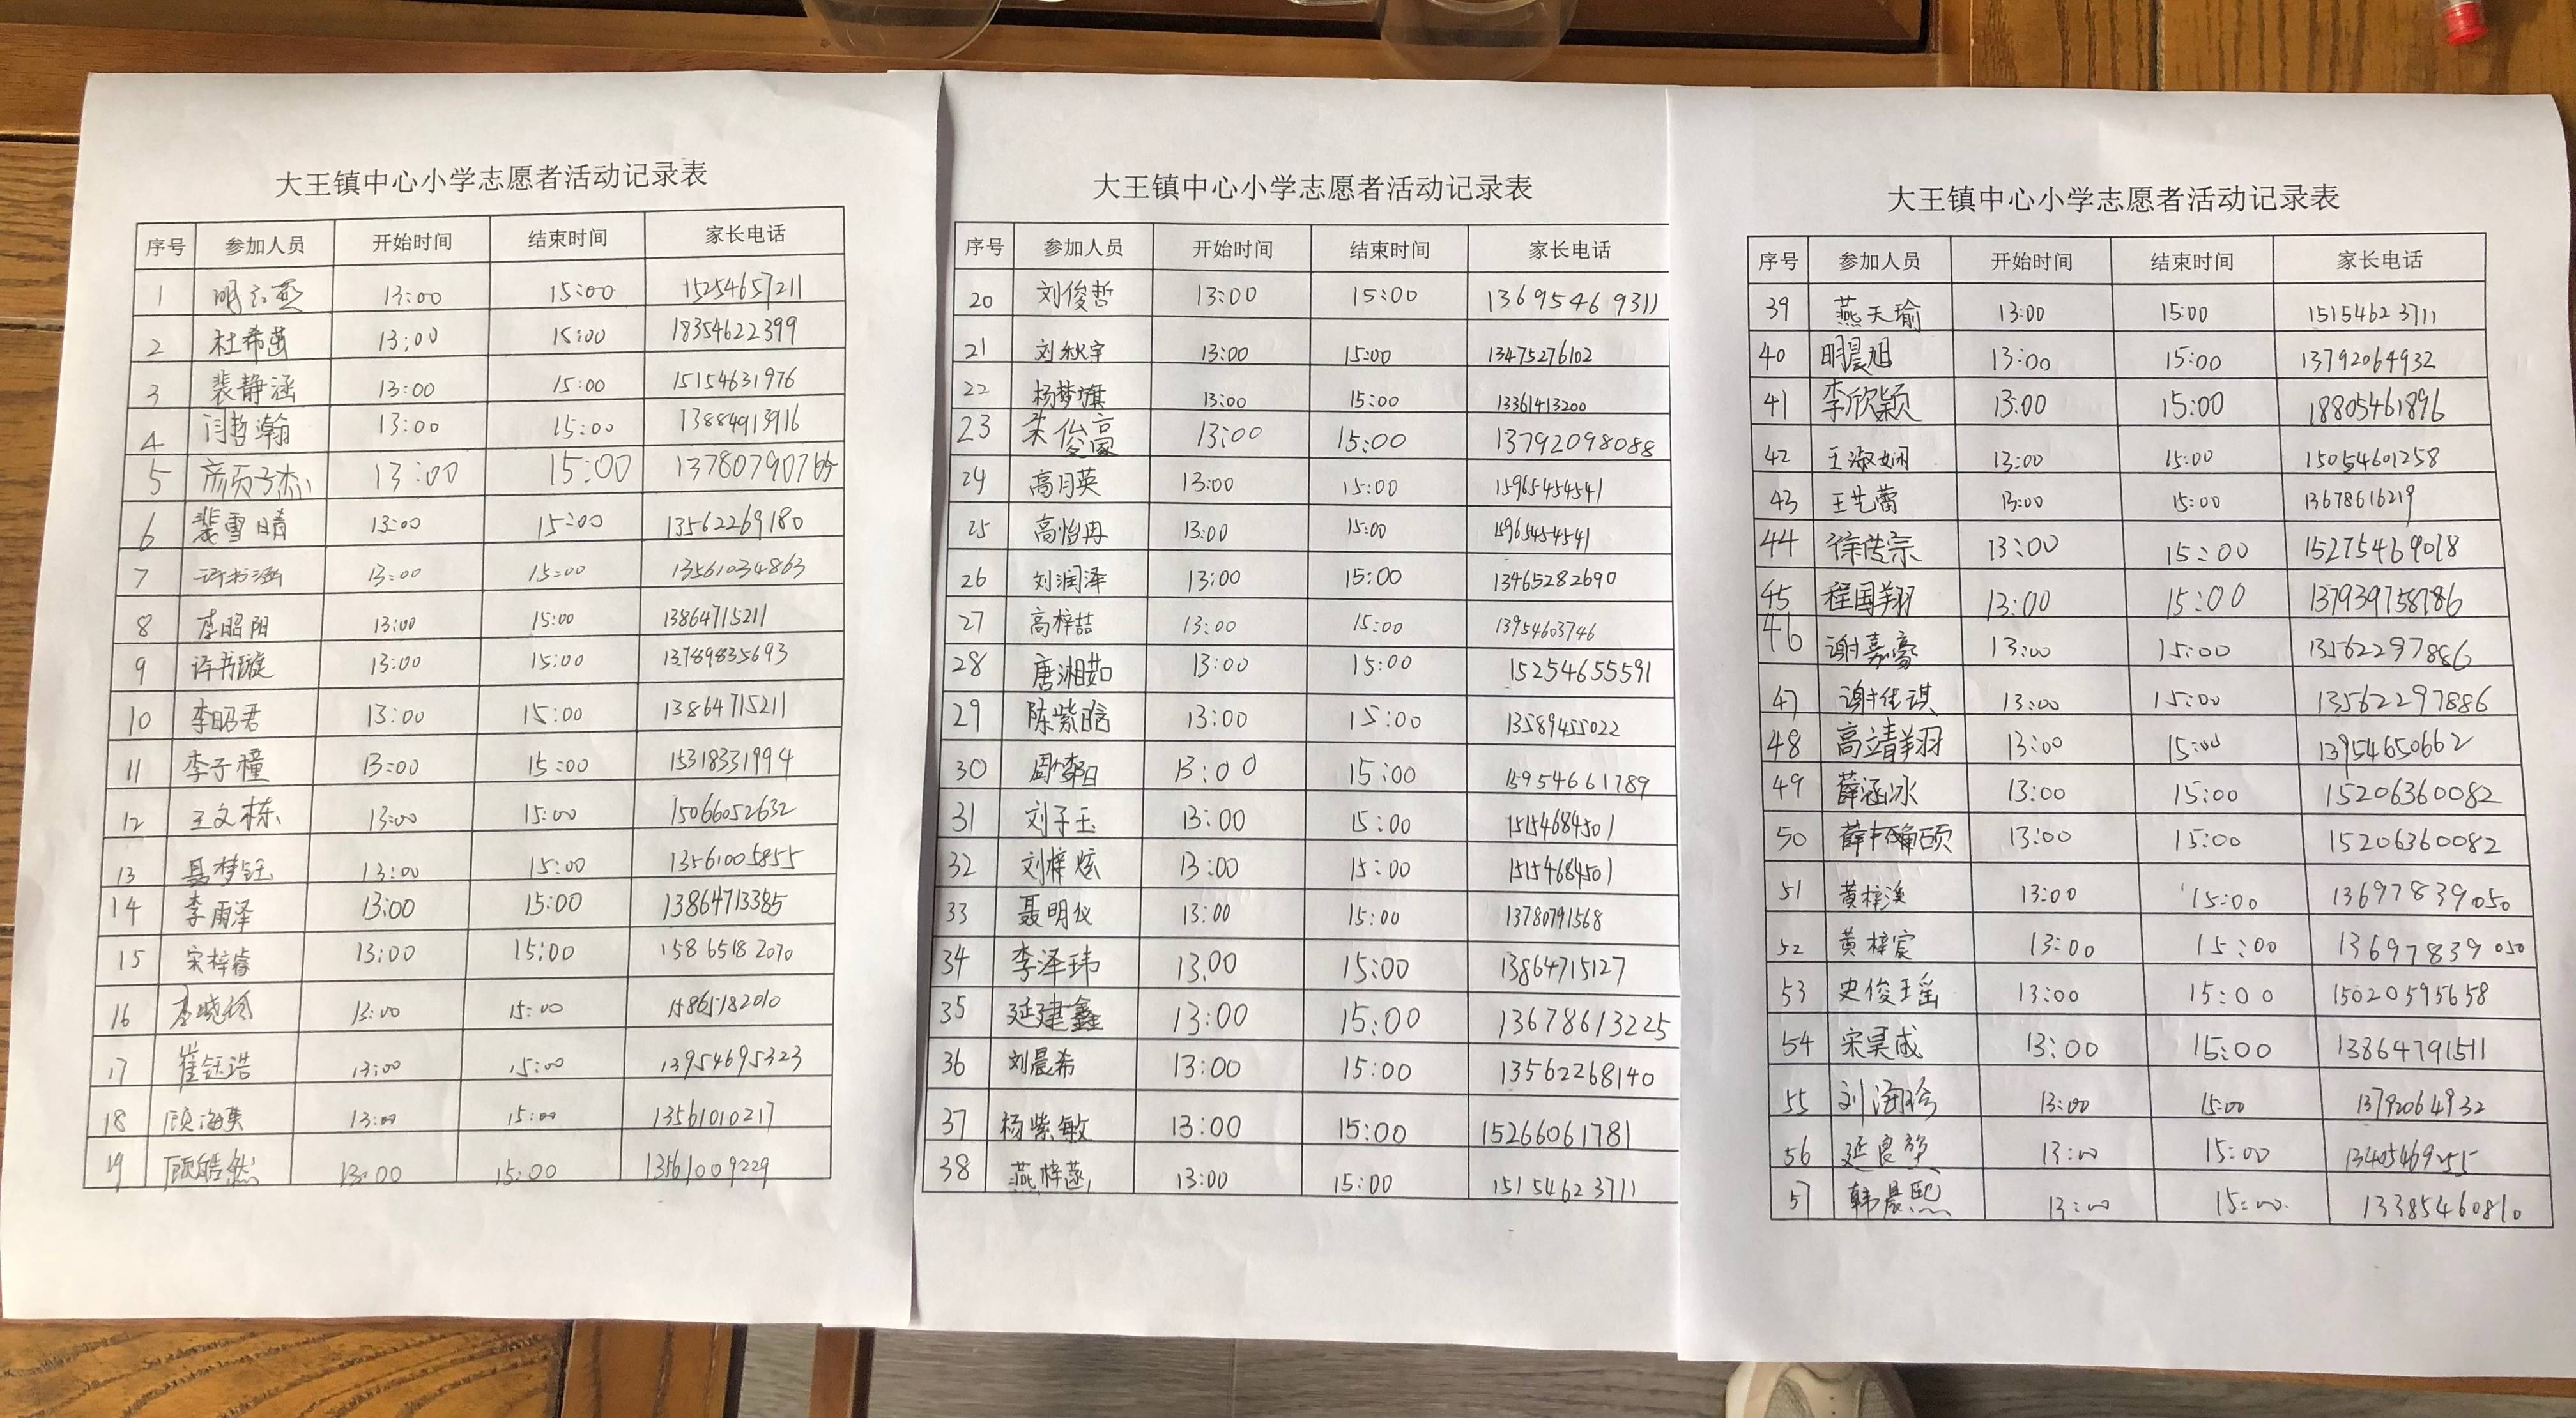 大王镇中心小学志愿者活动记录表
序号 参加人员 开始时间 结束时间 家长电话
1 明 13:00 15:00 15254657211
2 杜希茵 13:00 15:00 18354622399
3 裴静涵 13:00 15:00 15154631976
4 闫哲瀚 13:00 15:00 13884913916
5 颜子杰 13:00 15:00
6 裴雪晴 13:00 15:00 13562269180
7 许书涵 13:00 15:00 13561034863
8 李昭阳 13:00 15:00 13864715211
9 许书璇 13:00 15:00 13789835693
10 李昭君 13:00 15:00 13864715211
11 李子橦 13:00 15:00 15318331994
12 王文栋 13:00 15:00 15066052632
13 聂梦钰 13:00 15:00 13561005855
14 李雨泽 13:00 15:00 13864713385
15 宋梓睿 13:00 15:00 15865182070
16 李晓 13:00 15:00 15865182010
17 崔钰浩 13:00 15:00 13954695323
18 顾海 13:00 15:00 13561010217
19 顾皓然 13:00 15:00 13561009229
大王镇中心小学志愿者活动记录表
序号 参加人员 开始时间 结束时间 家长电话
20 刘俊哲 13:00 15:00 13695469311
21 刘秋宇 13:00 15:00 13475276102
22 杨梦旗 13:00 15:00 13361413200
23 荣俊豪 13:00 15:00 13792098088
24 高月英 13:00 15:00 15965454541
25 高怡冉 13:00 15:00 15965454541
26 刘润泽 13:00 15:00 13465282690
27 高梓喆 13:00 15:00 13954603746
28 唐湘茹 13:00 15:00 15254655591
29 陈紫晗 13:00 15:00 13589455022
30 周 13:00 15:00 15954661789
31 刘子玉 13:00 15:00 15154684501
32 刘梓炫 13:00 15:00 15154684501
33 聂明仪 13:00 15:00 13780791568
34 李泽玮 13:00 15:00 13864715127
35 延建鑫 13:00 15:00 13678613225
36 刘晨希 13:00 15:00 13562268140
37 杨紫敏 13:00 15:00 15266061781
38 燕梓菡 13:00 15:00 15154623711
大王镇中心小学志愿者活动记录表
序号 参加人员 开始时间 结束时间 家长电话
39 燕天瑜 13:00 15:00 15154623711
40 明晨旭 13:00 15:00 13792064932
41 李欣颖 13:00 15:00 18805461896
42 王淑娴 13:00 15:00 15054601258
43 王艺蕾 13:00 15:00 13678616219
44 徐传宗 13:00 15:00 15275469018
45 程国翔 13:00 15:00 137939758786
46 谢嘉豪 13:00 15:00 13562297886
47 谢佳琪 13:00 15:00 13562297886
48 高靖翔 13:00 15:00 13954650662
49 薛涵冰 13:00 15:00 15206360082
50 薛 13:00 15:00 15206360082
51 黄梓溪 13:00 15:00 13697839050
52 黄梓宸 13:00 15:00 13697839050
53 史俊瑶 13:00 15:00 15020595658
54 宋昊成 13:00 15:00 13864791511
55 刘 13:00 15:00 13792064932
56 延良 13:00 15:00 13405469255
57 韩晨熙 13:00 15:00 13385460810